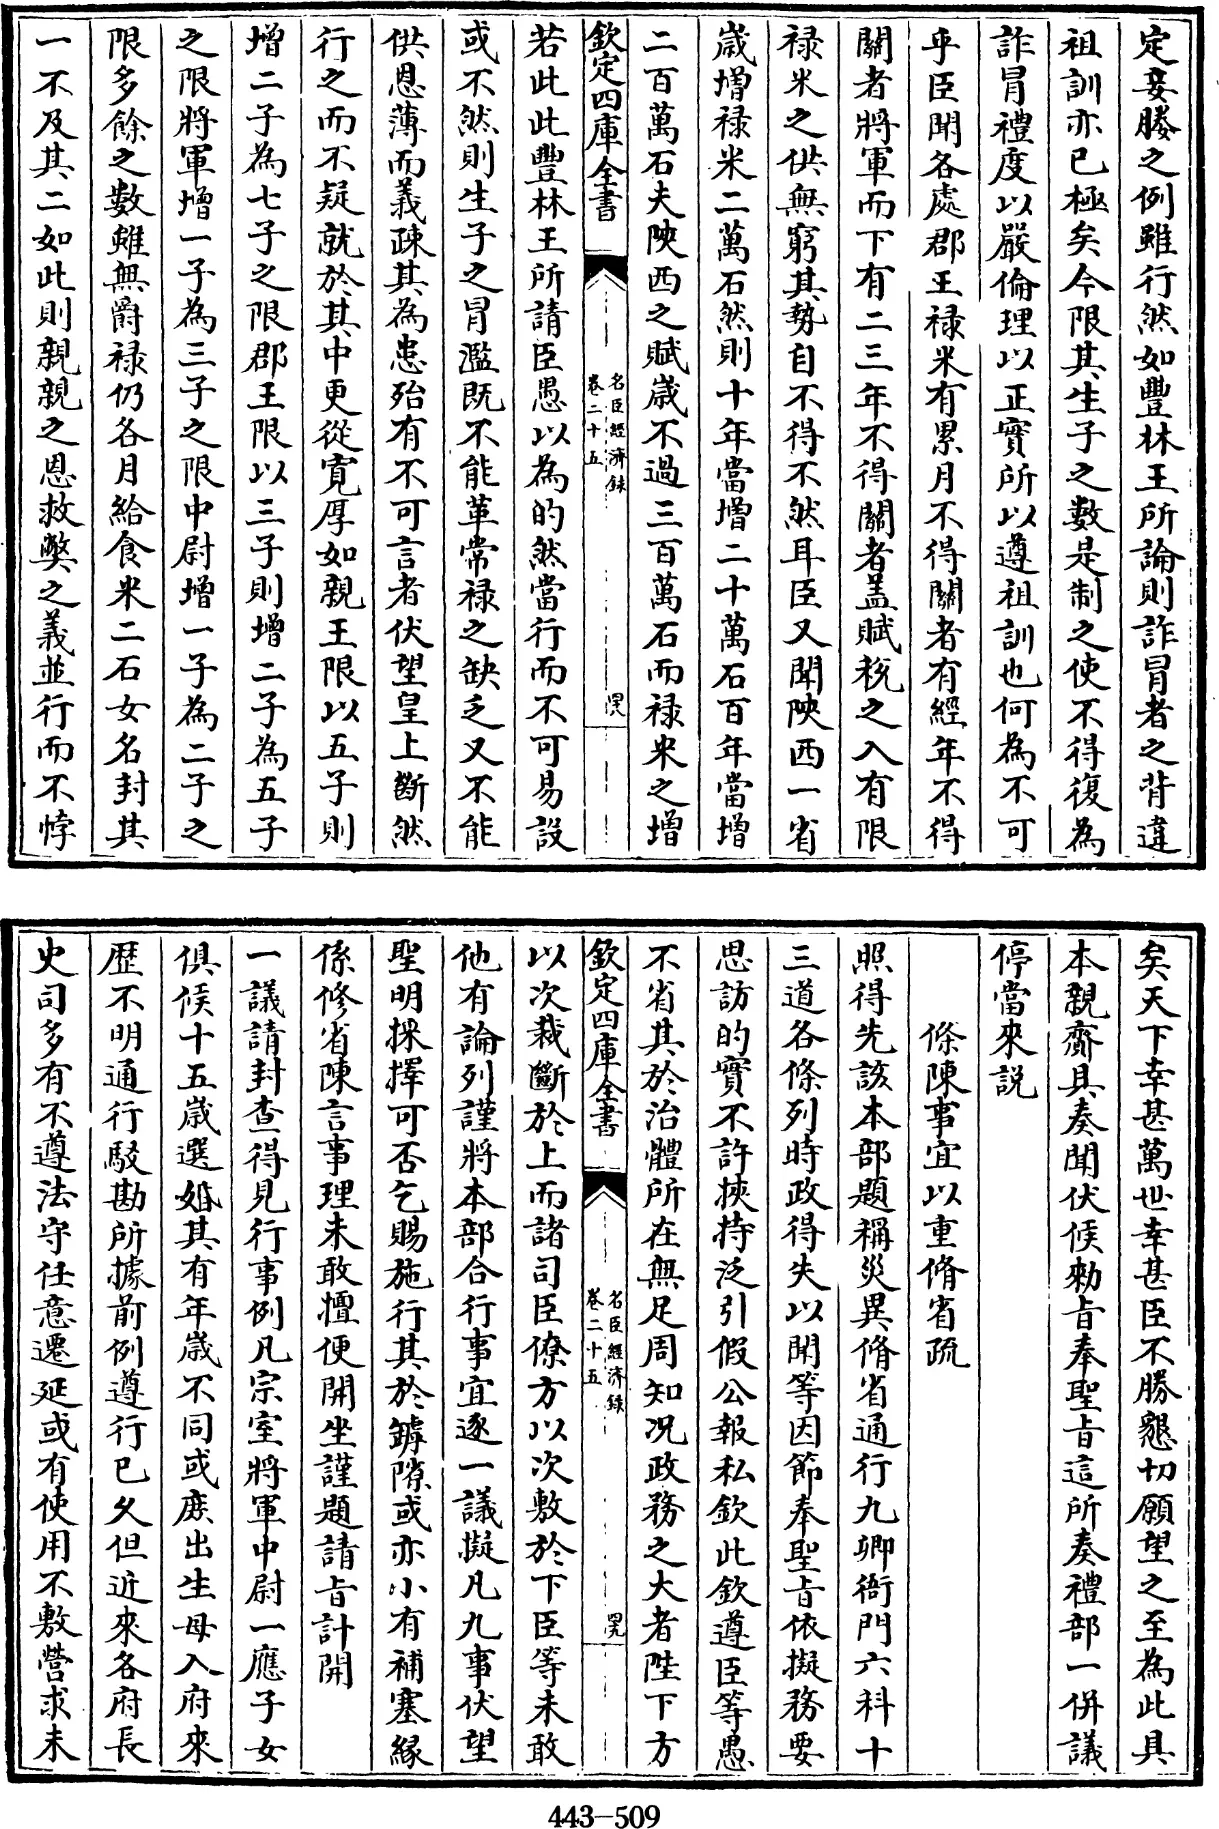 定妾媵之例雖行然如豐林王所論則詐冒者之背違
祖訓亦已極矣今限其生子之數是制之使不得復為
詐冒禮度以嚴倫理以正實所以遵祖訓也何為不可
乎臣聞各處郡王禄米有累月不得關者有經年不得
關者將軍而下有二三年不得關者盖賦稅之入有限
禄米之供無窮其勢自不得不然耳臣又聞陜西一省
嵗增禄米二萬石然則十年當增二十萬石百年當增
二百萬石夫陜西之賦嵗不過三百萬石而禄米之增
欽定四庫全書
名臣經濟録
卷二十五
若此此豐林王所請臣愚以為的然當行而不可易設
或不然則生子之冒濫既不能革常禄之缺乏又不能
供恩薄而義疎其為患殆有不可言者伏望皇上斷然
行之而不疑就於其中更從寛厚如親王限以五子則
增二子為七子之限郡王限以三子則增二子為五子
之限將軍增一子為三子之限中尉增一子為二子之
限多餘之數雖無爵禄仍各月給食米二石女名封其
一不及其二如此則親親之恩救獘之義並行而不悖
矣天下幸甚萬世幸甚臣不勝懇切願望之至為此具
本親齎具奏聞伏候勅旨奉聖旨這所奏禮部一併議
停當來説
條陳事宜以重脩省疏
照得先該本部題稱災異脩省通行九卿衙門六科十
三道各條列時政得失以聞等因節奉聖旨依擬務要
思訪的實不許挾持泛引假公報私欽此欽遵臣等愚
不省其於治體所在無足周知况政務之大者陛下方
欽定四庫全書
名臣經濟録
卷二十五
以次裁斷於上而諸司臣僚方以次敷於下臣等未敢
他有論列謹將本部合行事宜逐一議擬凡九事伏望
聖明採擇可否乞賜施行其於罅隙或亦小有補塞緣
係修省陳言事理未敢擅便開坐謹題請旨計開
一議請封查得見行事例凡宗室將軍中尉一應子女
俱候十五嵗選婚其有年嵗不同或庶出生母入府來
歴不明通行駁勘所據前例遵行已久但近來各府長
史司多有不遵法守任意遷延或有使用不敷營求未
443-509